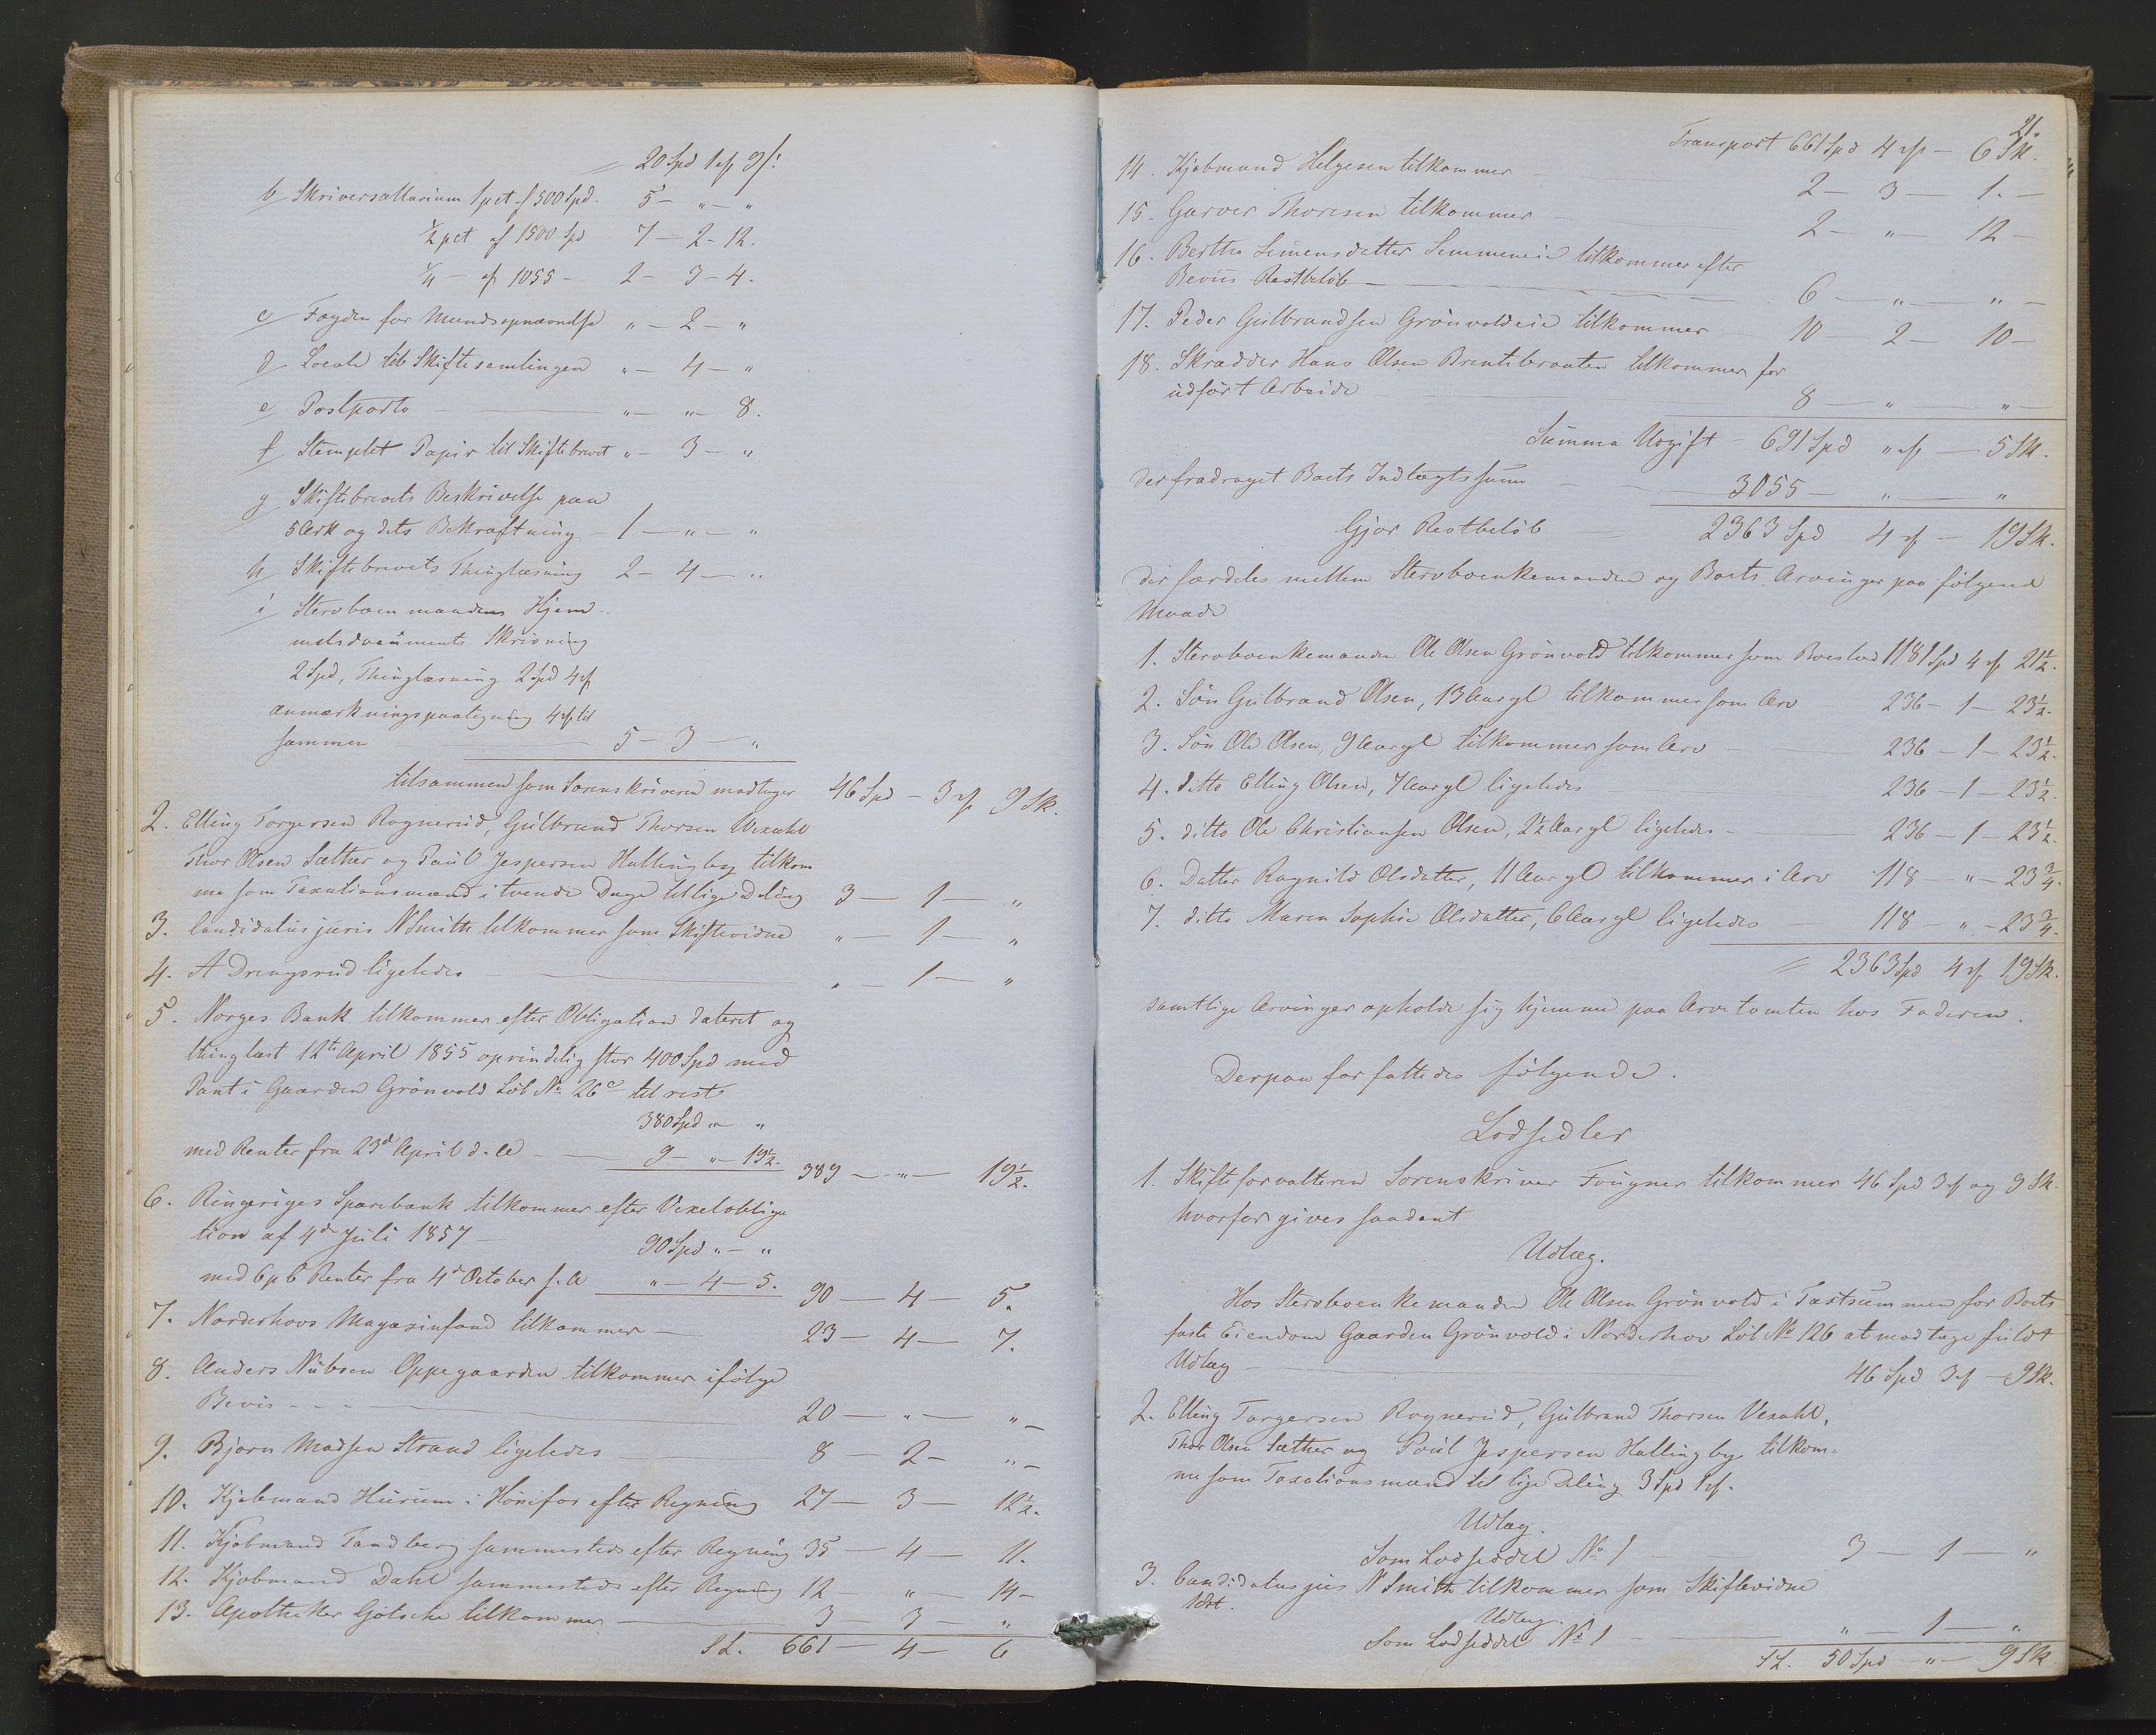 = 20 Spd 1 ₰ 9 /:
b/ Skriversallarium 1 pct f 500 Spd. 5 - " - "
½ pct af 1500 Spd 7 - 2 - 12.
¼ - af 1055 - 2 - 3 - 4.
c/ Fogden for Mændsopnævnelse " - 2 - "
d/ Locale til Skiftesamlingen " - 4 - "
e/ Postporto " - " - 8.
f/ Stemplet Papir til Skiftebrevet " - 3 - "
g/ Skiftebrevets Beskrivelse paa
5 Ark og dets Bekræftning - 1 - " - "
h/ Skiftebrevets Thinglæsning 2 - 4 - "
i/ Stervboenmandens Hjem-
melsdocuments Skrivning
2 Spd, Thinglæsning 2 Spd 4 ₰
anmærkningspaategning 4 ₰ til
sammen 5 - 3 - "
tilsammen som Sorenskriveren modtager 46 Spd - 3 ₰ 9 Sk.
2. Elling Torgersen Rognerud, Gulbrand Thorsen Vexahl
Thor Olsen Sæther og Paul Jespersen Hallingby tilkom
me som Taxationsmænd i tvende Dage til lige Deling 3 - 1 - "
3. Candidatus juris N Smith tilkommer som Skiftevidne " - 1 - "
4. A Drengsrud ligeledes " - 1 - "
5. Norges Bank tilkommer efter Obligation dateret og
thinglæst 12te April 1855 oprindelig stor 400 Spd med
Pant i Gaarden Grönvold Löb No 26c til rest
380 Spd " "
med Renter fra 23d April d. A 9 - " - 19½. 389 - " - 19½.
6. Ringeriges Sparebank tilkommer efter Vexelobliga
tion af 4de Juli 1857 - 90 Spd " - "
med 6 p C Renter fra 4d October s. A " - 4 - 5. 90 - 4 - 5.
7. Norderhovs Magasinfond tilkommer - 23 - 4 - 7.
8. Anders Nubsen Oppegaarden tilkommer ifölge
Bevis 20 - " - " -
9. Bjørn Madsen Strand ligeledes 8 - 2 - " -
10. Kjøbmand Hurum i Hönefos efter Regning 27 - 3 - 12½.
11. Kjøbmand Tandberg sammesteds efter Regning 35 - 4 - 11.
12. Kjøbmand Dahl sammesteds efter Regning 12 - " - 14 -
13. Apotheker Götsche tilkommer 3 - 3 - "
SL. 661 - 4 - 6
21.
Transport 661 Spd 4 ₰ - 6 Sk.
14. Kjøbmand Helgesen tilkommer 2 - 3 - 1. -
15. Garver Thoresen tilkommer 2 - " - 12 -
16. Berthe Simensdatter Semmeneie tilkommer efter
Beviis Restbeløb 6 - " - " -
17. Peder Gulbrandsen Grönvoldeie tilkommer 10 - 2 - 10 -
18. Skrædder Hans Olsen tilkommer for
udført Arbeide 8 - " - " -
Summa Udgift = 691 Spd " ₰ - 5 Sk.
der fradraget Boets Indtægtssum 3055 - " - "
Gjør Restbeløb 2363 Spd 4 ₰ - 19 Sk.
der fordeles mellem Stervboenkemanden og Boets Arvinger paa følgende
Maade
1. Stervboenkemanden Ole Olsen Grönvold tilkommer som Boeslod 1181 Spd 4 ₰ 21½.
2. Sön Gulbrand Olsen, 13 Aar gl tilkommer som Arv 236 - 1 - 23½.
3. Sön Ole Olsen, 9 Aar gl tilkommer som Arv 236 - 1 - 23½.
4. ditto Elling Olsen, 7 Aar gl ligeledes 236 - 1 - 23½.
5. ditto Ole Christiansen Olsen, 2½ Aar gl ligeledes - 236 - 1 - 23½.
6. Datter Ragnild Olsdatter, 11 Aar gl tilkommer i Arv 118 - " - 23¾.
7. ditto Maren Sophie Olsdatter, 6 Aar gl ligeledes 118 - " - 23¾.
= 2363 Spd 4 ₰ 19 Sk.
samtlige Arvinger opholde sig hjemme paa Arvetomten hos Faderen.
Derpaa forfattedes følgende.
Lodsedler
1. Skifteforvalteren Sorenskriver Fougner tilkommer 46 Spd 3 ₰ og 9 Sk.
hvorfor gives saadant
Udlæg.
Hos Stervboenkemanden Ole Olsen Grönvold i Taxtsummen for Boets
faste Eiendom Gaarden Grönvold i Norderhov Löb No 126 at modtage fuldt
Udlæg 46 Spd 3 ₰ - 9 Sk.
2. Elling Torgersen Rognerud, Gulbrand Thorsen Vexahl,
Thor Olsen Sæther og Poul Jespersen Hallingby tilkom-
me som Taxationsmænd til lige Deling 3 Spd 1 ₰.
Udlæg.
Som Lodseddel No 1 3 - 1 - "
3. Candidatus juris N Smith tilkommer som Skiftevidne
1 Ort.
Udlæg.
Som Lodseddel No 1 - " - 1 - "
SL. 50 Spd - " - 9 Sk